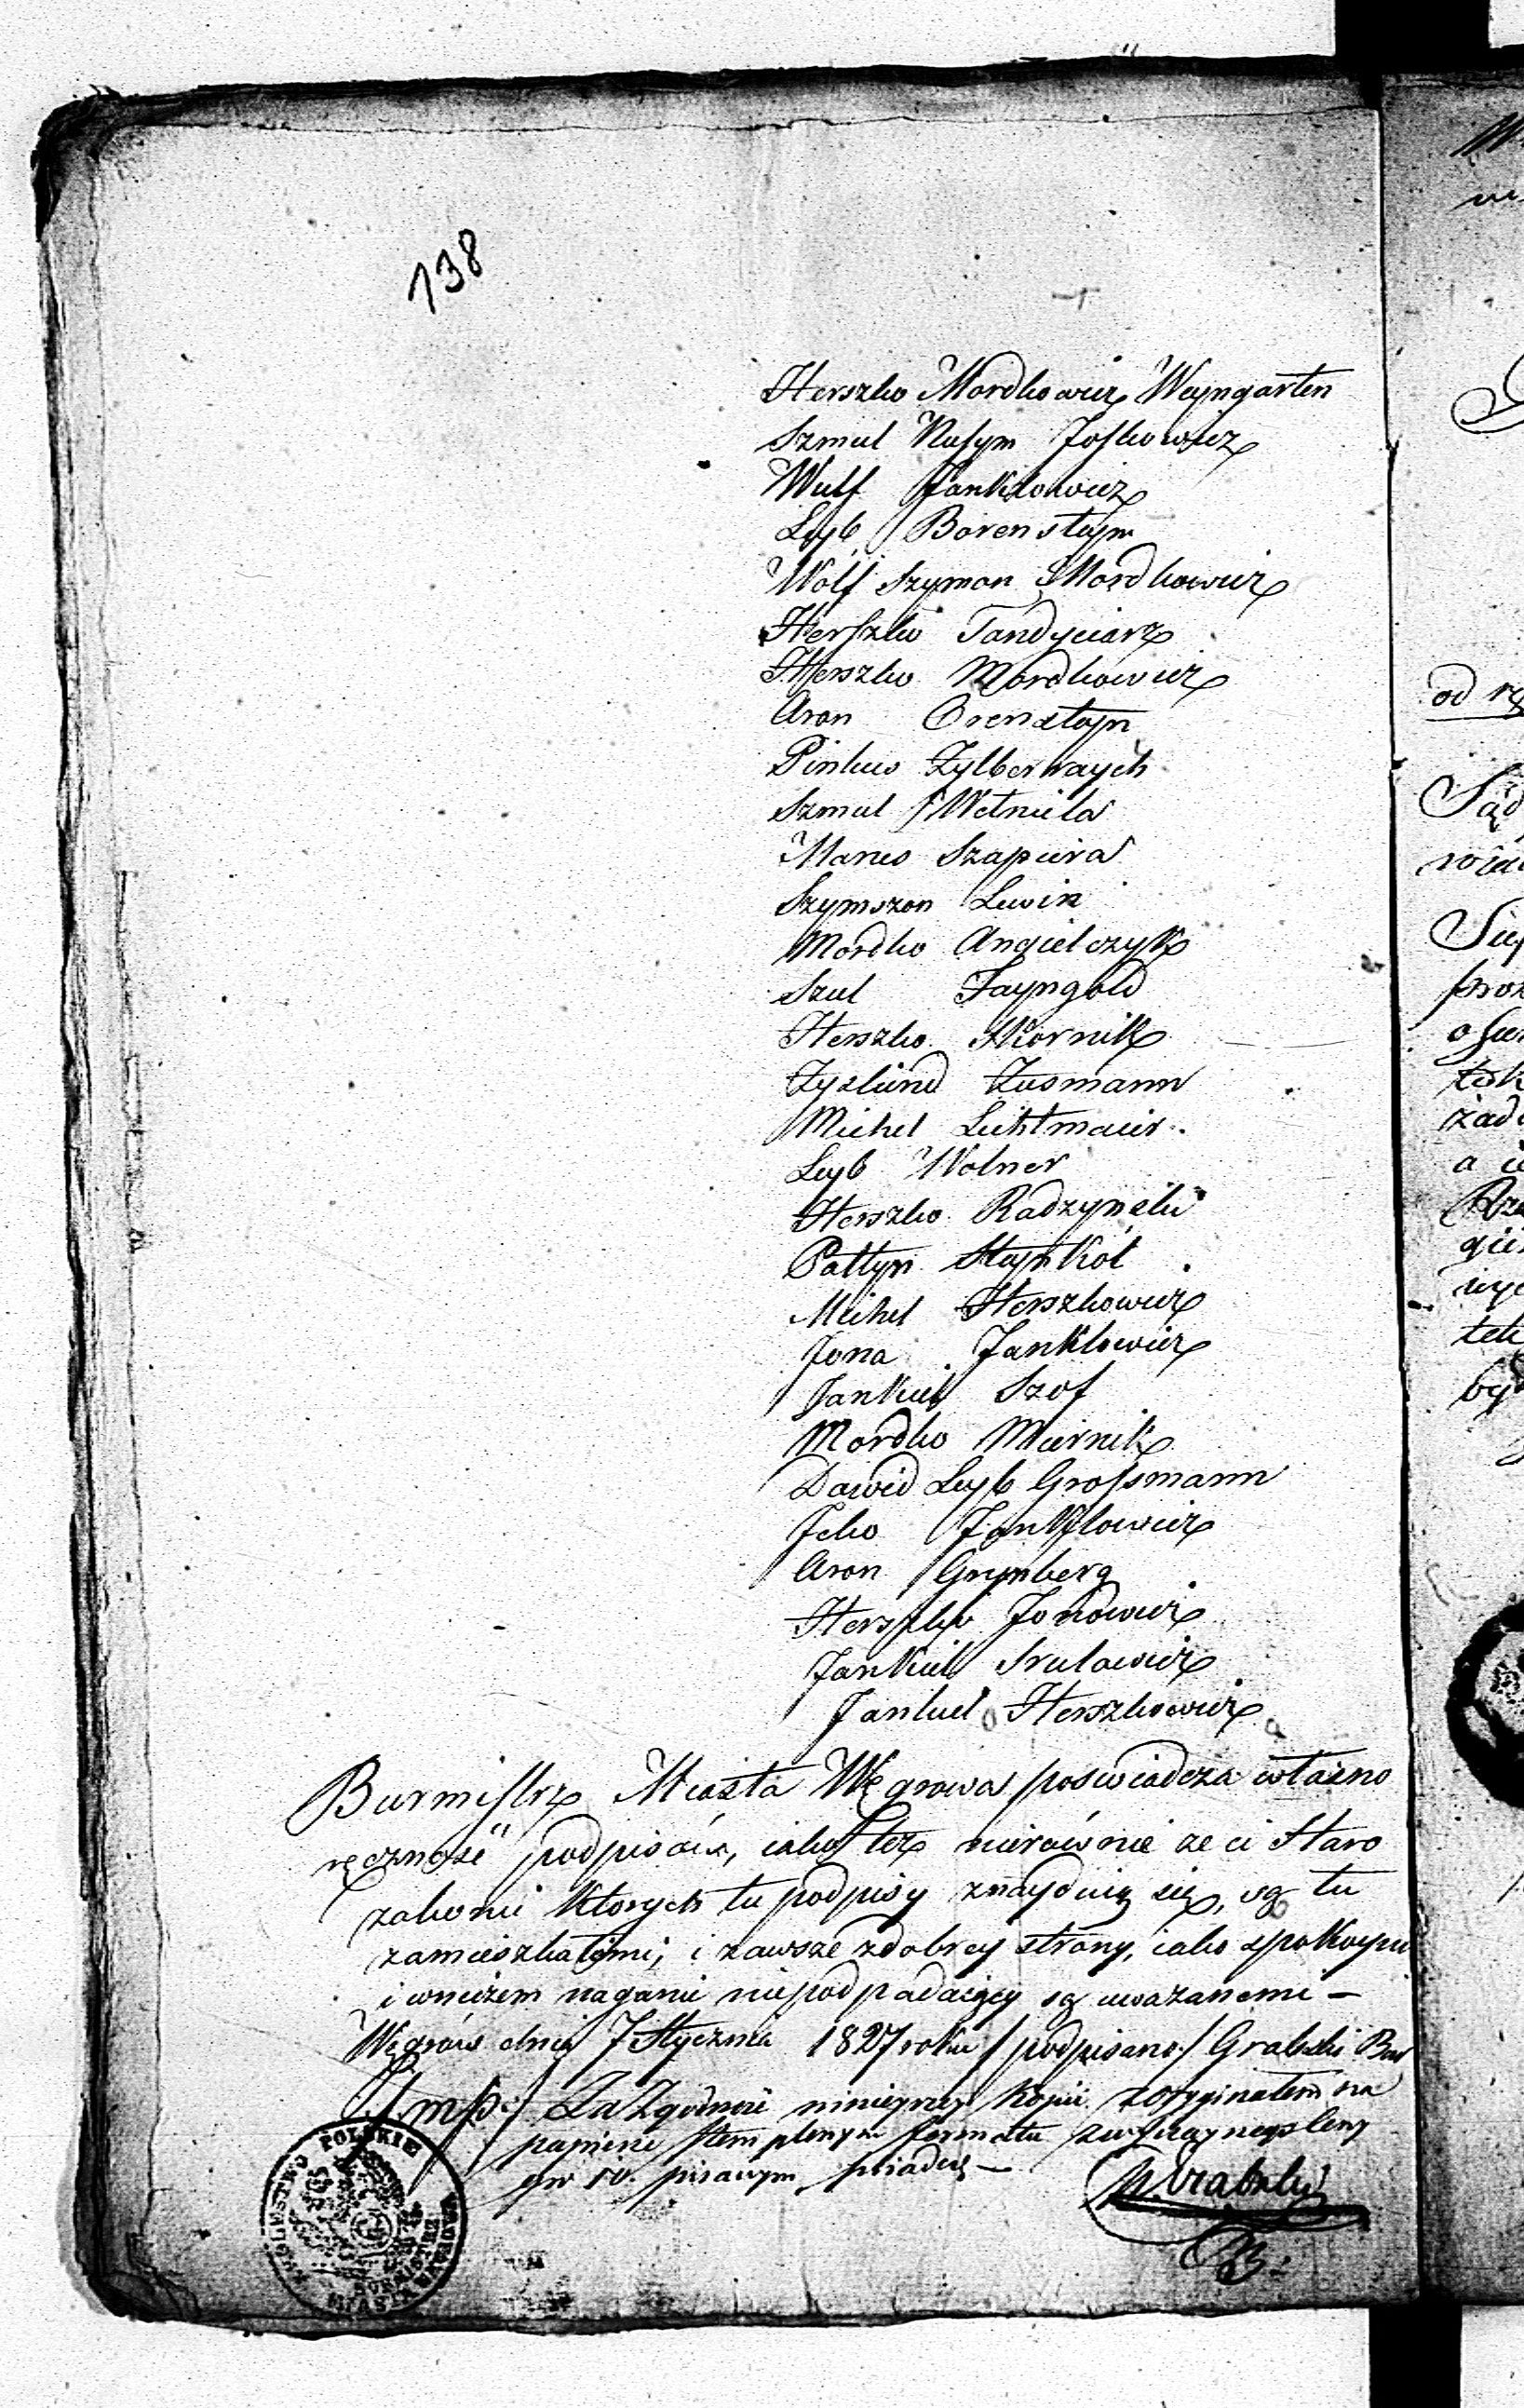 138
Herszko Mordkowicz Wayngarten
Szmul Nusym Joskowicz
Wulf Janklowicz
Leyb Borensteyn
Wólf Szymon Mordkowicz
Herszko Tandyciarz
Herszko Mordkowicz
Aron Orensztayn
Pinkus Zylberwaych
Szmul Wetnila
Manes Szapiera
Szymszon Lewin
Mordko Angielczyk
Szul Fayngold
Herszko Skornik
Zyskind Zusmann
Michel Lichtmaier
Leyb Wolner
Herszko Radzynski
Paltyn Staynkol
Michel Herszkowicz
Jona Janklowicz
Jankiel Szof
Mordko Miernik
Dawid Leyb Grossmann
Icko Janklowicz
Aron Grynberg
Herszko Jonowicz
Jankiel Srulowicz
Jankiel Herszkowicz
Burmistrz Miasta Węgrowa poswiadcza własno
ręczność podpisów, iako tez nierównie ze ci Staro
zakonni których tu podpisy znayduią się, są tu
zamieszkałemi, i zawsze z dobrey strony, iako spokoyni
i wniczem naganie niepodpadaiący są uwazanemi —
Węgrów dnia 7 Stycznia 1827 roku /podpisano/ Grabski Bur
Imp:/ Za Zgodność ninieyszey kopii z oryginałem na
papierze stemplowym formatu
pisanym
Grabski
B:
KRÓLESTWO POLSKIE
BURMISTRZ
MIASTA WĘGROWA
od
Sąd